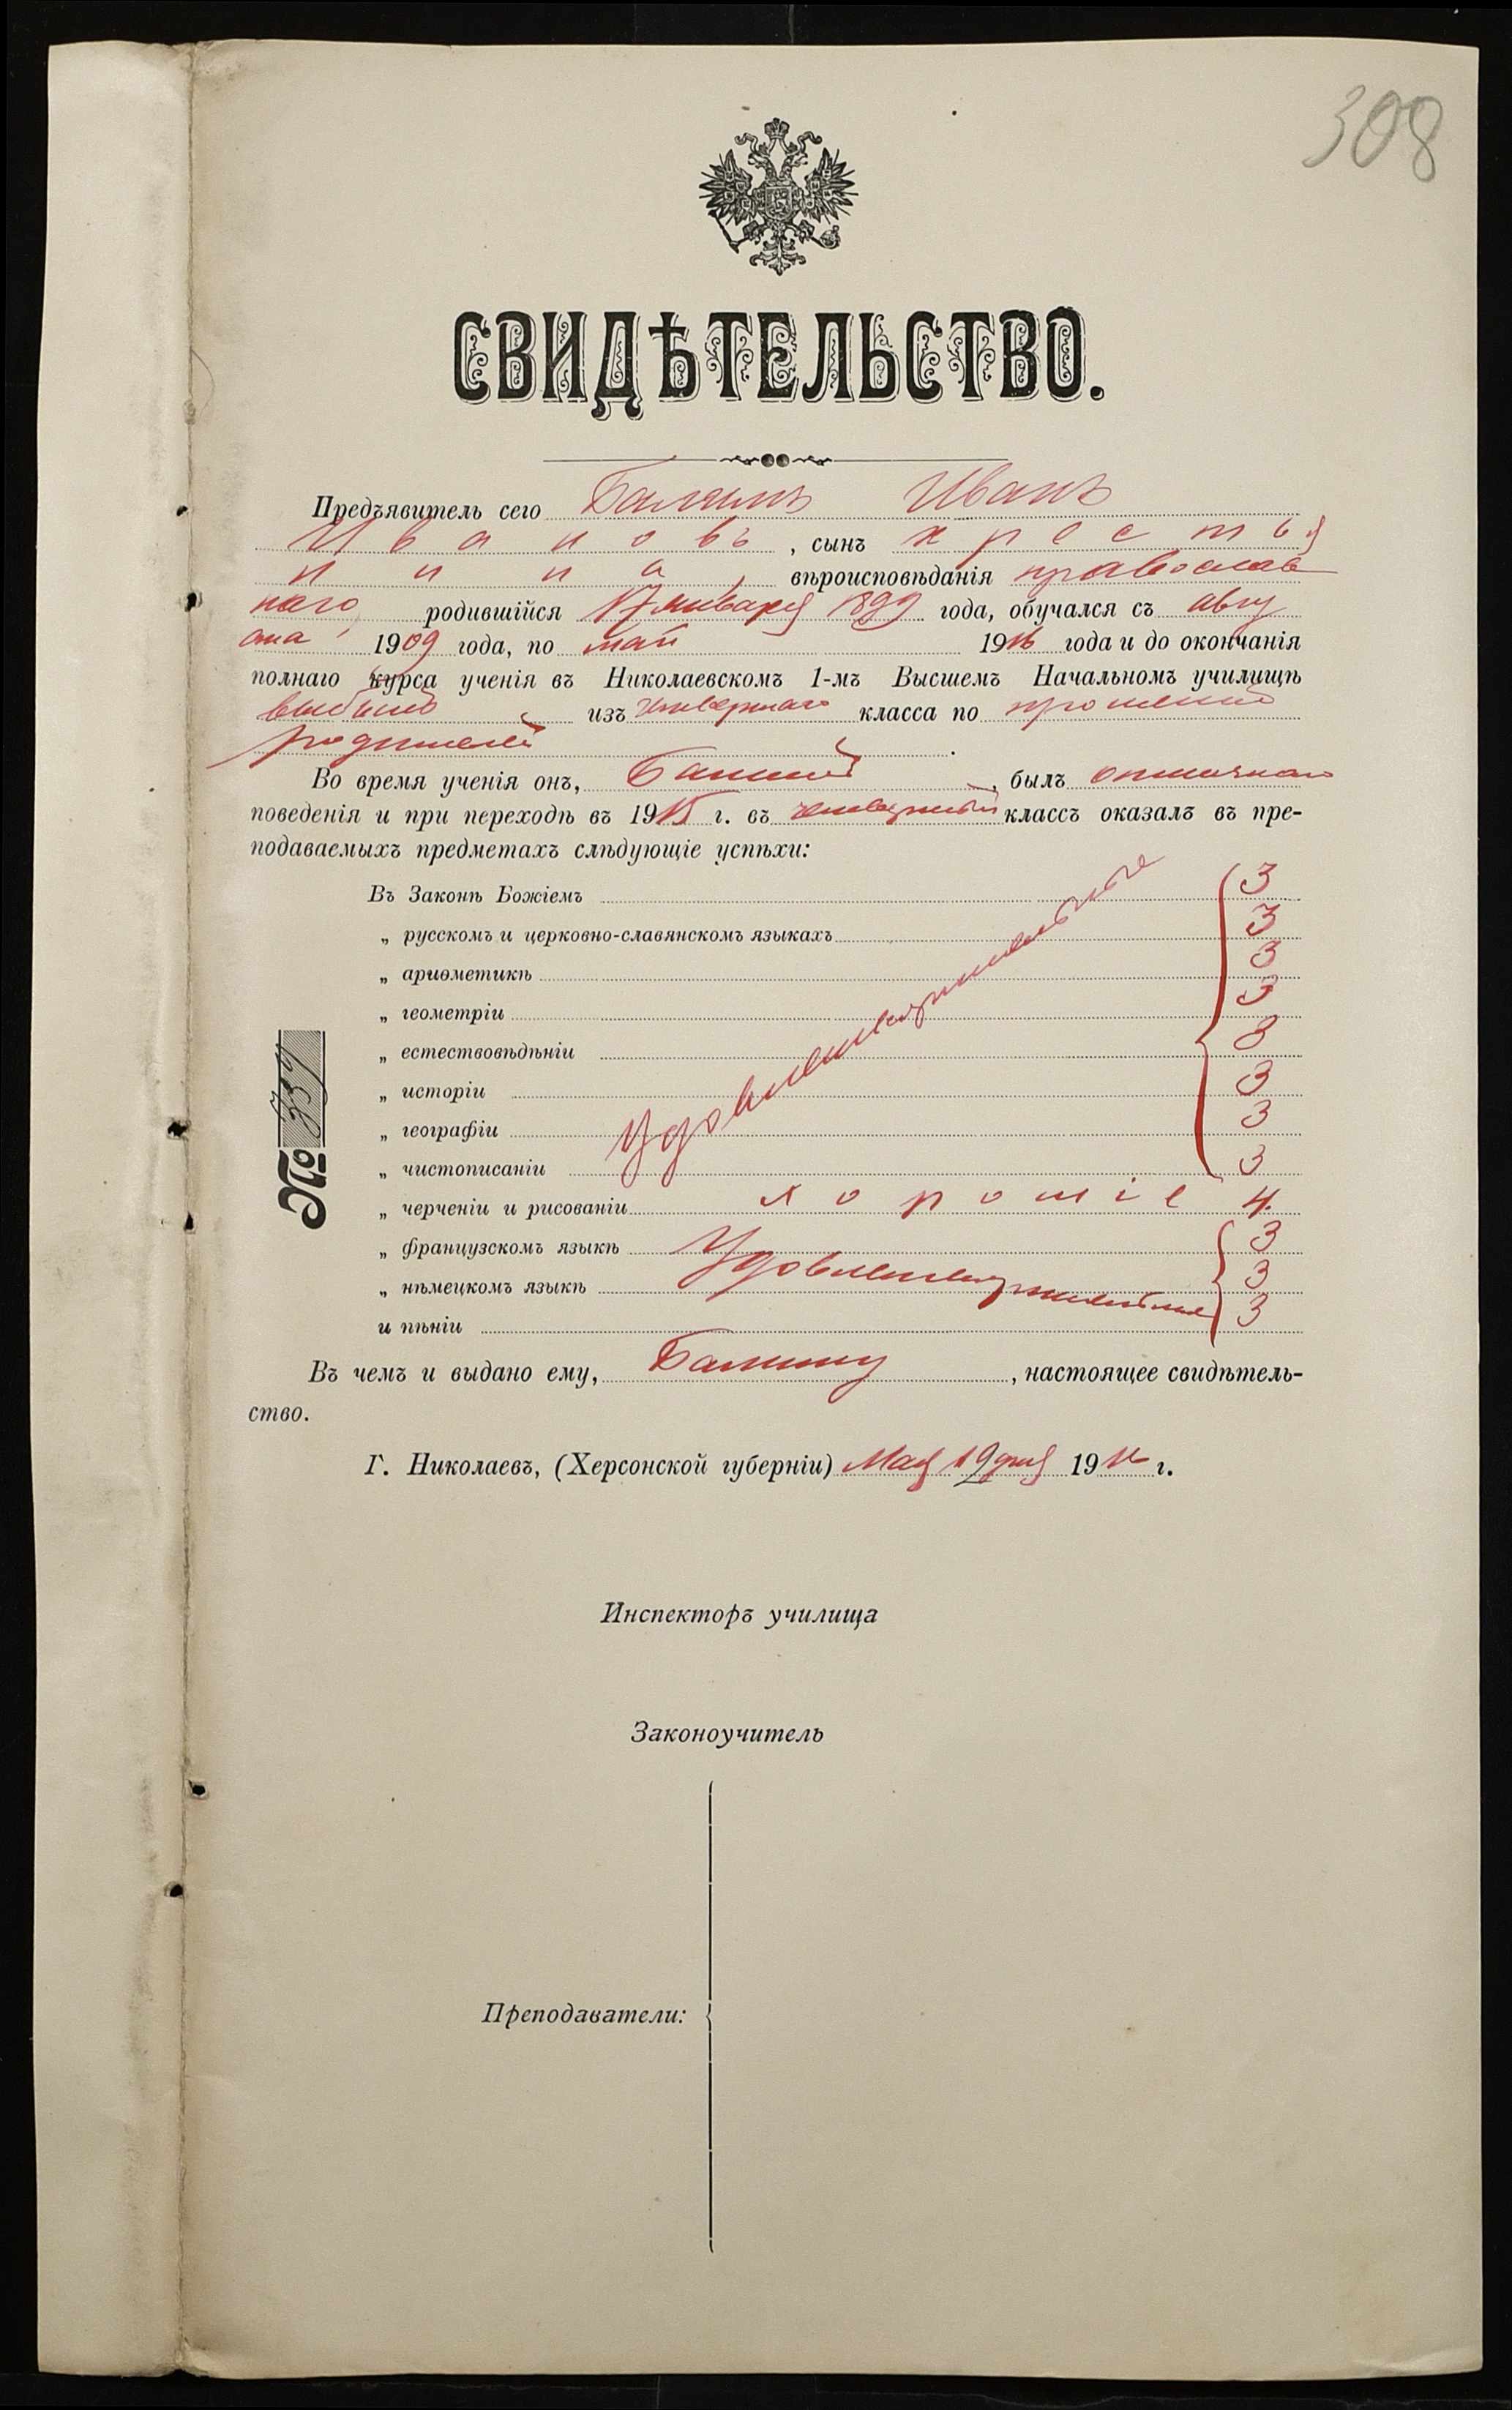 308
СВИДѢТЕЛЬСТВО.
Предъявитель сего Иванъ
Ивановъ, сынъ крестья
нина, вѣроисповѣданія православ
наго родившійся 17 января 1899 года, обучался съ авгу
ста 1909 года, по май 1916 года и до окончанія
полнаго курса ученія въ Николаевскомъ 1-мъ Высшемъ Начальномъ училищѣ
выбылъ изъ четвертаго класса по прошенію
родителей.
Во время ученія онъ, , былъ отличнаго
поведенія и при переходѣ въ 1915 г. въ четвертый классъ оказалъ въ пре-
подаваемыхъ предметахъ слѣдующіе успѣхи:
Въ Законѣ Божіемъ 3
„ русскомъ и церковно-славянскомъ языкахъ 3
„ ариѳметикѣ 3
„ геометріи 3
„ естествовѣдѣніи 3
„ исторіи 3
„ географіи 3
„ чистописаніи 3
удовлетворительные
„ черченіи и рисованіи хорошіе 4.
„ французскомъ языкѣ 3
„ нѣмецкомъ языкѣ удовлетворительные 3
и пѣніи 3
№
Въ чемъ и выдано ему, , настоящее свидѣтель-
ство.
Г. Николаевъ, (Херсонской губерніи) Мая 19 дня 1916 г.
Инспекторъ училища
Законоучитель
Преподаватели: